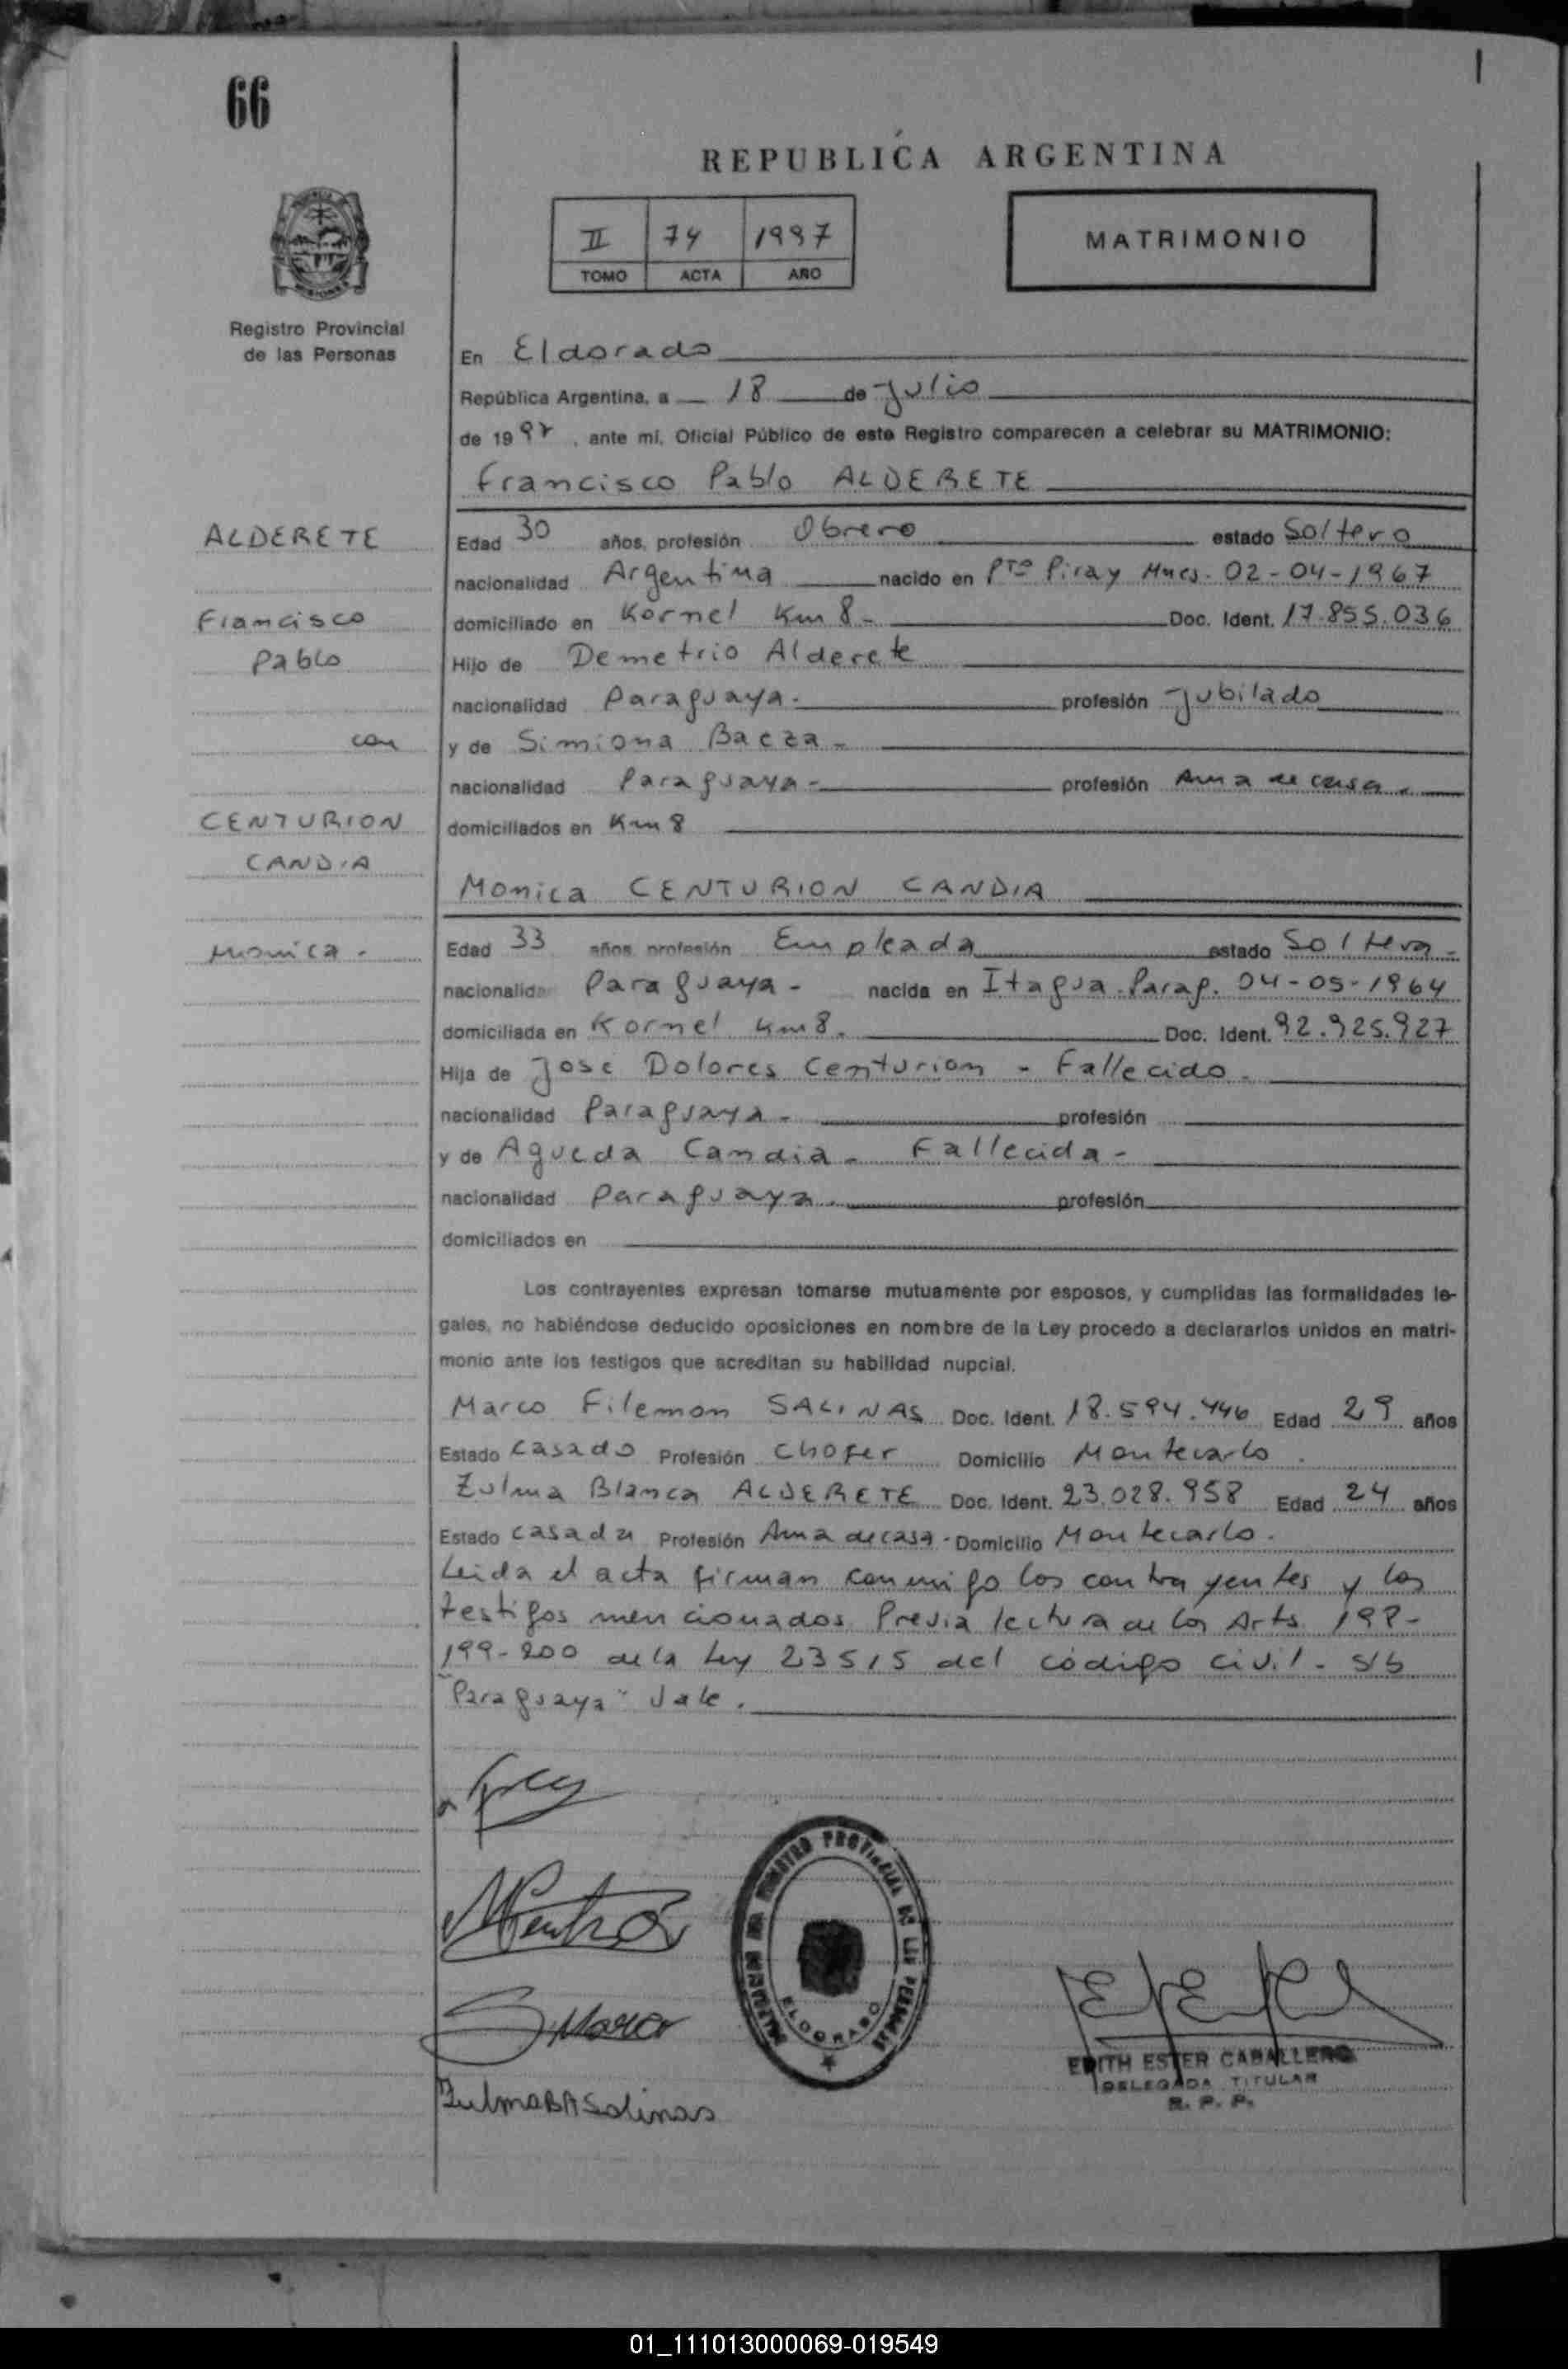 66
REPUBLICA ARGENTINA
II 74 1997
TOMO ACTA AÑO
MATRIMONIO
Registro Provincial
de las Personas
En Eldorado
República Argentina, a 18 de Julio
de 1997, ante mí, Oficial Público de este Registro comparecen a celebrar su MATRIMONIO:
Francisco Pablo ALDERETE
ALDERETE
Francisco
Pablo
con
CENTURION
CANDIA
Monica.-
Edad 30 años, profesión Obrero estado Soltero
nacionalidad Argentina nacido en Pto Piray Mnes. 02-04-1967
domiciliado en Kornel Km 8.- Doc. Ident. 17.855.036
Hijo de Demetrio Alderete
nacionalidad Paraguaya.- profesión Jubilado
y de Simiona Baeza.-
nacionalidad Paraguaya.- profesión Ama de casa.
domiciliados en Km 8
Monica CENTURION CANDIA
Edad 33 años, profesión Empleada estado Soltera-
nacionalidad Paraguaya.- nacida en Itagua.Parag. 04-05-1964
domiciliada en Kornel Km 8. Doc. Ident. 92.925.927
Hija de José Dolores Centurion - Fallecido.
nacionalidad Paraguaya.- profesión
y de Agueda Candia.- Fallecida-
nacionalidad Paraguaya. profesión
domiciliados en
Los contrayentes expresan tomarse mutuamente por esposos, y cumplidas las formalidades le-
gales, no habiéndose deducido oposiciones en nombre de la Ley procedo a declararlos unidos en matri-
monio ante los testigos que acreditan su habilidad nupcial.
Marco Filemon SALINAS Doc. Ident. 18.594.446 Edad 29 años
Estado Casado Profesión Chofer Domicilio Montecarlo.
Zulma Blanca ALDERETE Doc. Ident. 23.028.958 Edad 24 años
Estado casada Profesión Ama de casa- Domicilio Montecarlo.
Leida el acta firman conmigo los contrayentes y los
testigos mencionados. Previa lectura de los Arts. 198-
199-200 de la Ley 23515 del código civil.- S/b
"Paraguaya" Vale.
REGISTRO PROVINCIAL DE LAS PERSONAS
ELDORADO
S, Marco
Zulma BA Salinas
EDITH ESTER CABALLERO
DELEGADA TITULAR
R. P. P.
01_111013000069-019549